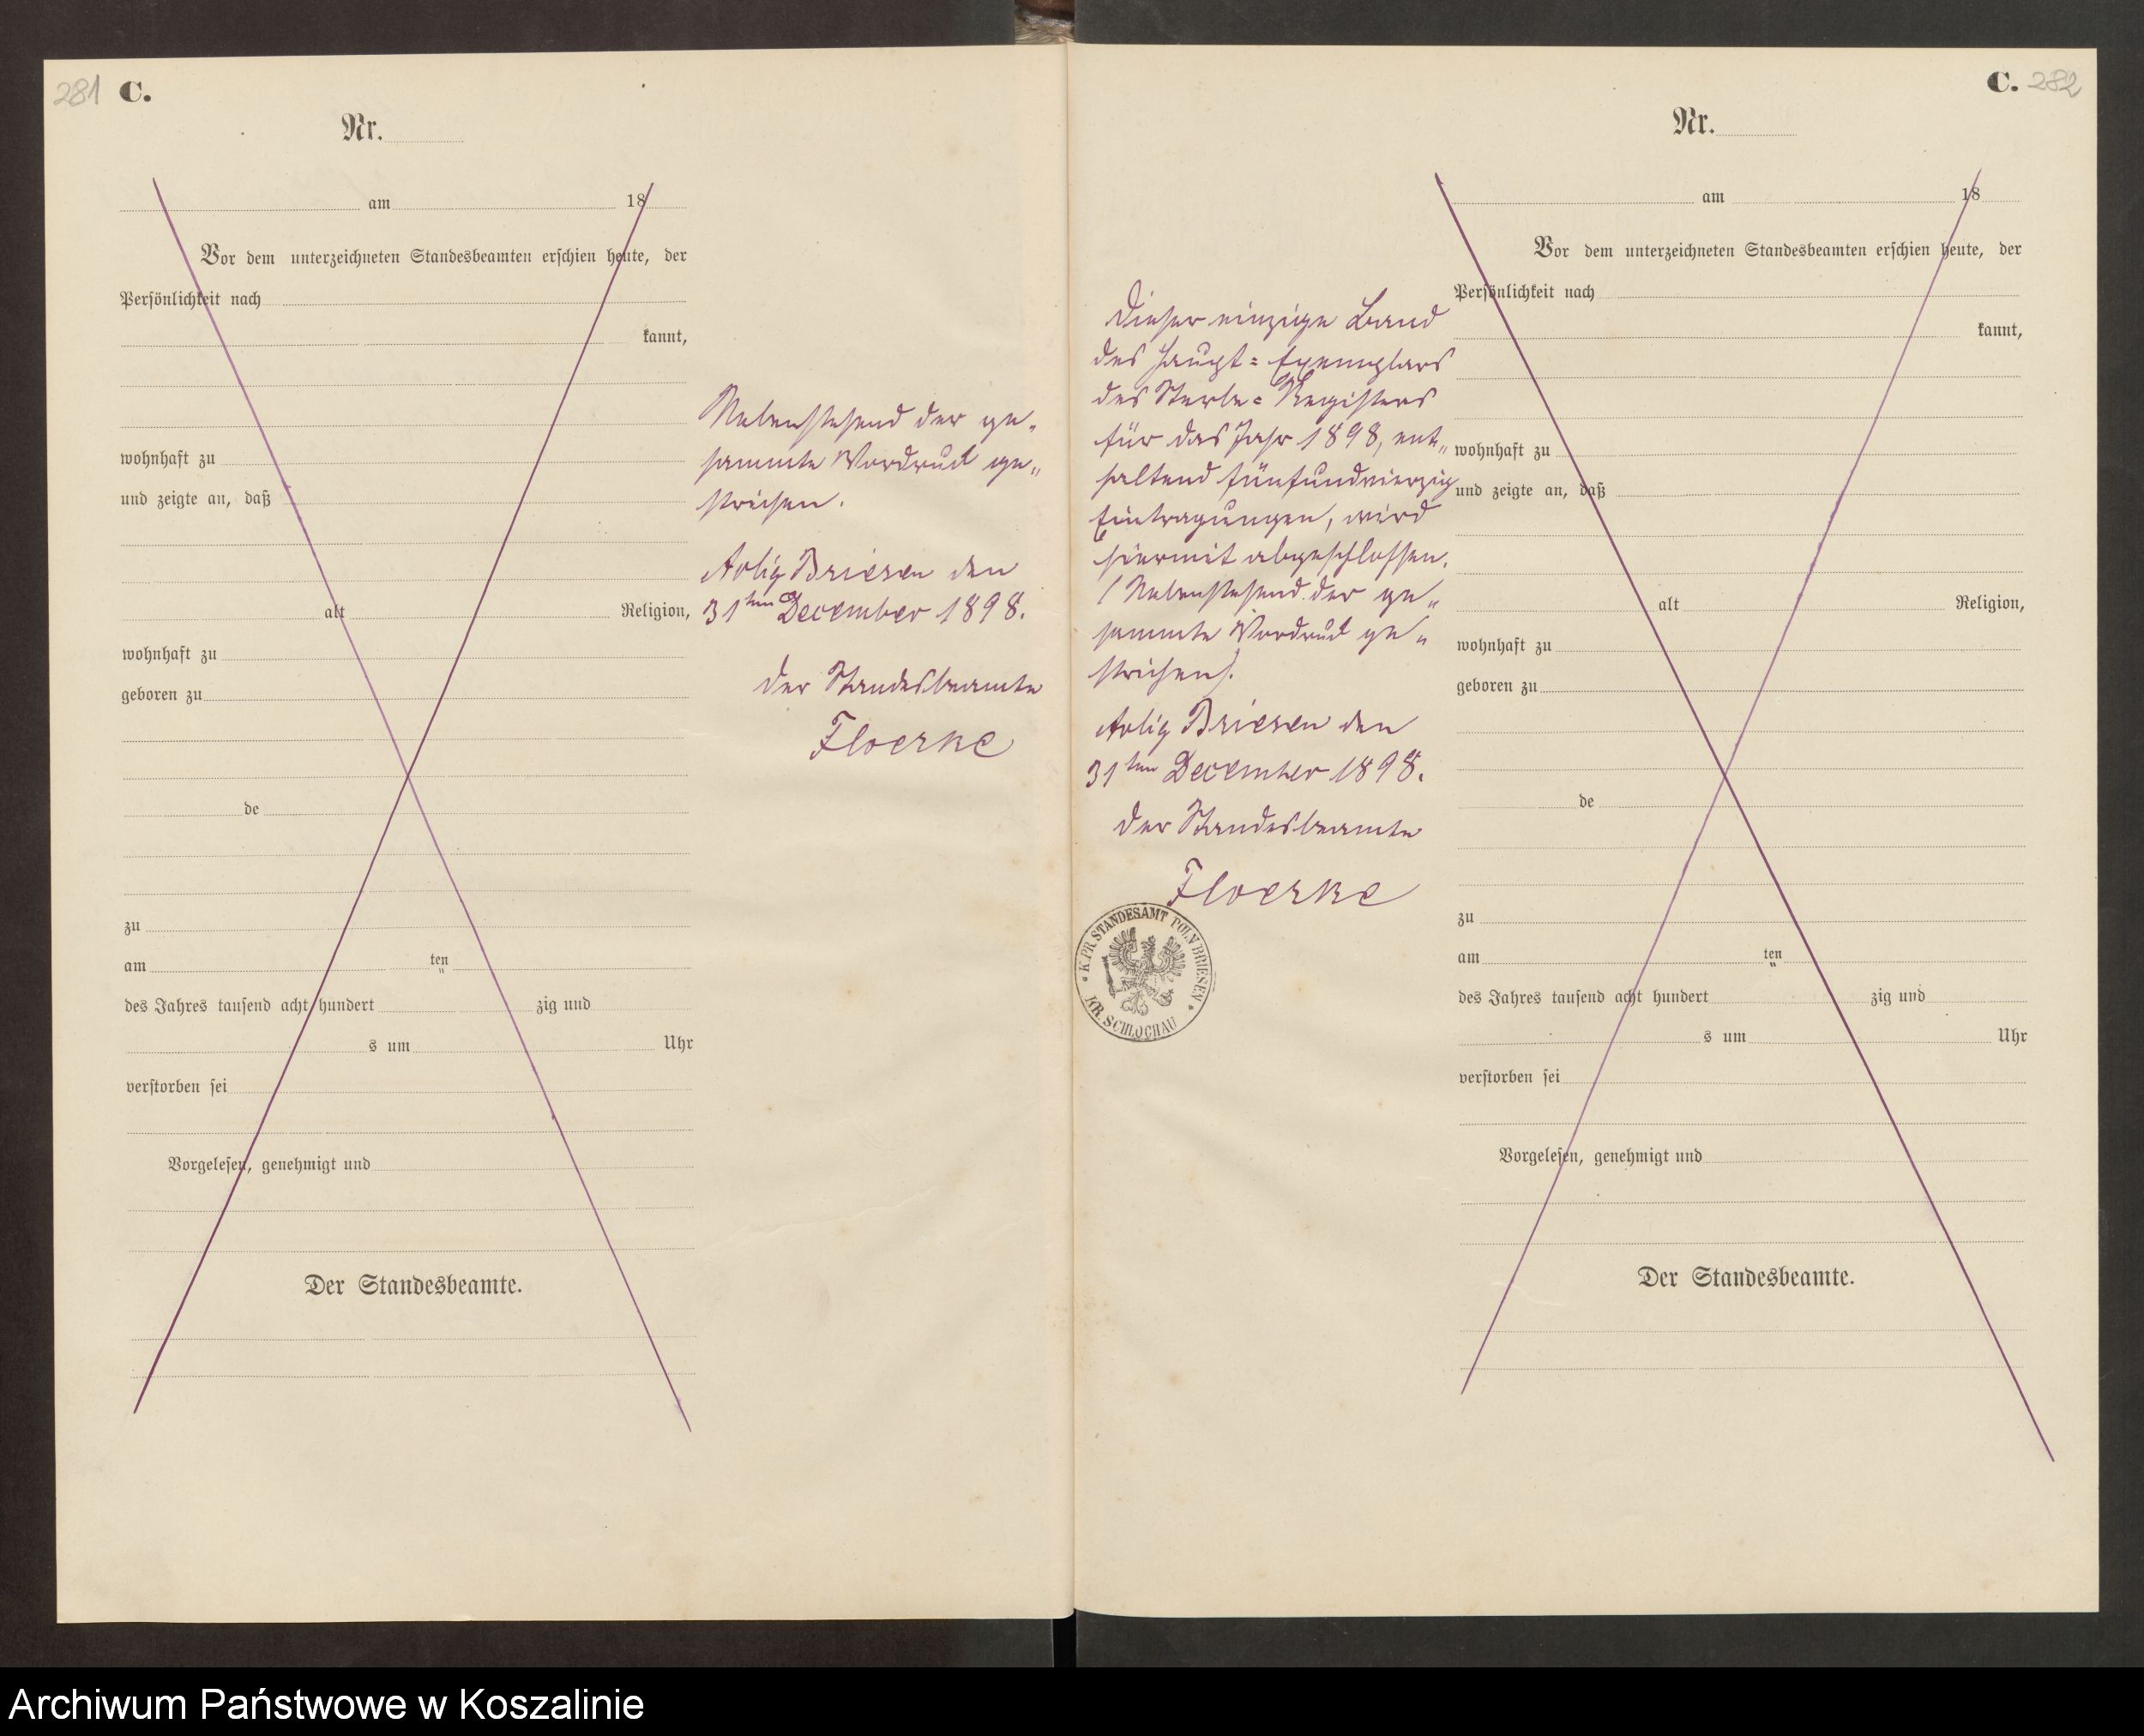 281 C.
Nr.
am 18
Vor dem unterzeichneten Standesbeamten erschien heute, der
Persönlichkeit nach
kannt,
wohnhaft zu
und zeigte an, daß
alt Religion,
wohnhaft zu
geboren zu
de
zu
am ten
des Jahres tausend acht hundert zig und
s um Uhr
verstorben sei
Vorgelesen, genehmigt und
Der Standesbeamte.
Nebenstehend der ge-
sammte Vordruck ge-
strichen.
Briesen den
31ten December 1898.
Der Standesbeamte
Floerke
C. 282
Nr.
am 18
Vor dem unterzeichneten Standesbeamten erschien heute, der
Persönlichkeit nach
kannt,
wohnhaft zu
und zeigte an, daß
alt Religion,
wohnhaft zu
geboren zu
de
zu
am ten
des Jahres tausend acht hundert zig und
s um Uhr
verstorben sei
Vorgelesen, genehmigt und
Der Standesbeamte.
Dieser einzige Band
des Haupt-Exemplars
des Sterbe-Registers
für das Jahr 1898, ent-
haltend fünfundvierzig
Eintragungen, wird
hiermit abgeschlossen.
(Nebenstehend der ge-
sammte Vordruck ge-
strichen).
Briesen den
31ten December 1898.
Der Standesbeamte
Floerke
* K. PR. STANDESAMT POLN BRIESEN *
KR. SCHLOCHAU
Archiwum Państwowe w Koszalinie